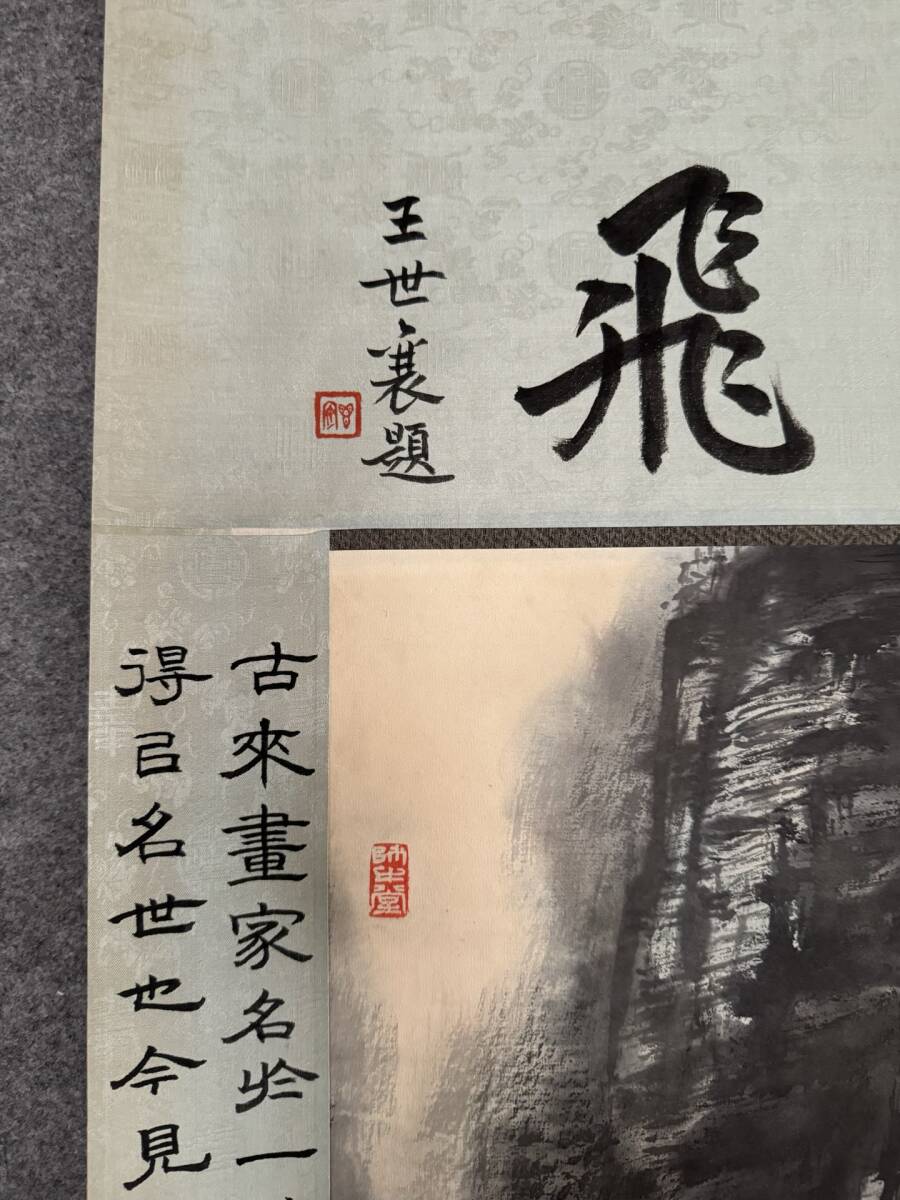 飛
王世襄題
師牛堂
古來畫家名於一
得㠯名世也今見